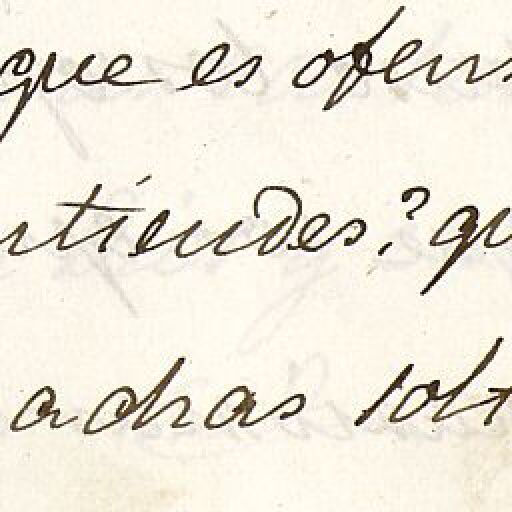 que es ofens
ntiendes? qu
adras solt